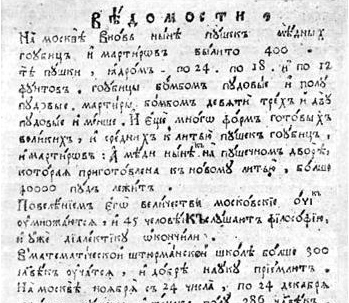 ВѢДОМОСТИ
На москвѣ вновь нынѣ пушекъ мѣдныхъ
гоубицъ и мартировъ вылито 400.
тѣ пушки, ядромъ - по 24. по 18. и по 12
фунтовъ. гоубицы бомбомъ пудовые и полу
пудовые. мартиры бомбомъ девяти трехъ и дву
пудовые и менше. И еще много формъ готовыхъ
великихъ и среднихъ к литью пушекъ гоубицъ,
и мартировъ: А мѣди нынѣ на пушечном дворѣ,
которая приготовлена к новому литью, болше
40000 пудъ лежитъ.
Повелѣнiемъ Егѡ величества московскiе
оумножаются, и 45 человѣкъ слушаютъ фiлософiю,
и уже дiалектiку ѡкончили.
Въ математической штюрманской школе болше 300
человѣкъ оучатся, и добрѣ науку прiемлютъ.
На москвѣ ноября съ 24 числа, по 24 декабря